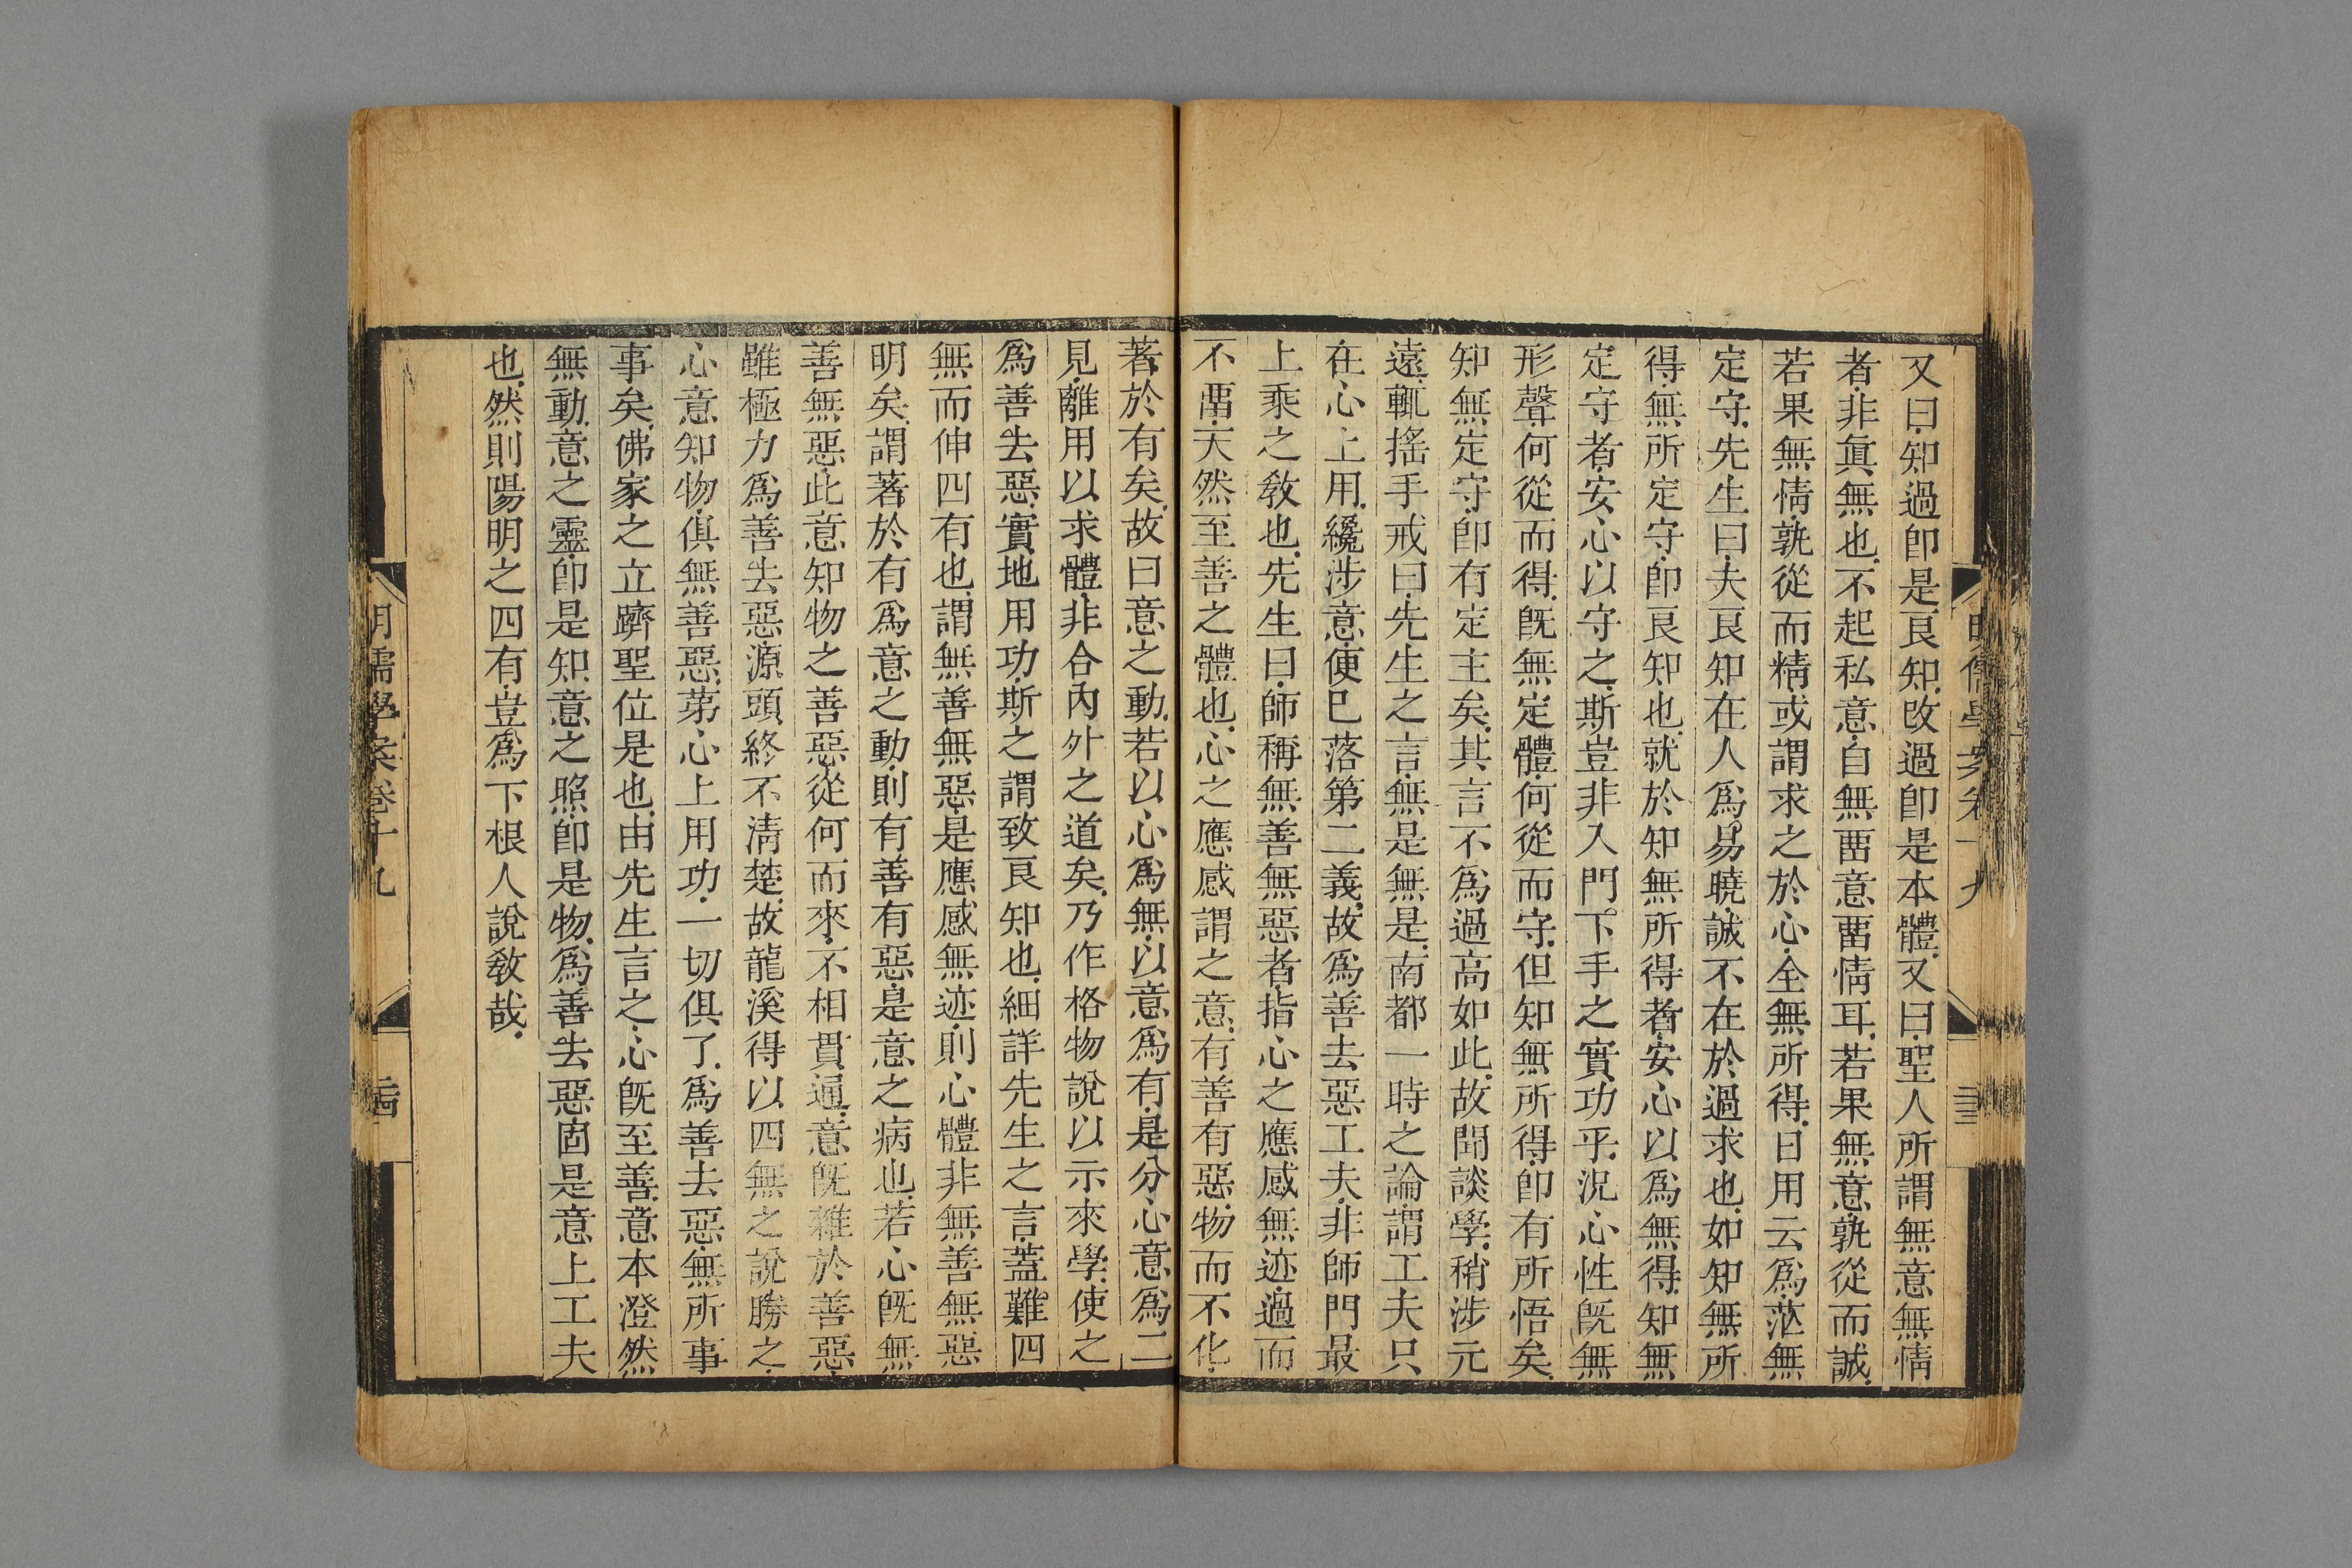 又曰知過卽是良知改過卽是本體又曰聖人所謂無意無情
者非眞無也不起私意自無畱意畱情耳若果無意孰從而誠
若果無情孰從而精或謂求之於心全無所得日用云爲茫無
定守先生曰夫良知在人爲易曉誠不在於過求也如知無所
得無所定守卽良知也就於知無所得者安心以爲無得知無
定守者安心以守之斯豈非入門下手之實功乎況心性旣無
形聲何從而得旣無定體何從而守但知無所得卽有所悟矣
知無定守卽有定主矣其言不爲過高如此故聞談學稍涉元
遠輒搖手戒曰先生之言無是無是南都一時之論謂工夫只
在心上用纔涉意便已落第二義故爲善去惡工夫非師門最
上乘之敎也先生曰師稱無善無惡者指心之應感無迹過而
不畱天然至善之體也心之應感謂之意有善有惡物而不化
著於有矣故曰意之動若以心爲無以意爲有是分心意爲二
見離用以求體非合內外之道矣乃作格物說以示來學使之
爲善去惡實地用功斯之謂致良知也細詳先生之言蓋難四
無而伸四有也謂無善無惡是應感無迹則心體非無善無惡
明矣謂著於有爲意之動則有善有惡是意之病也若心旣無
善無惡此意知物之善惡從何而來不相貫通意旣雜於善惡
雖極力爲善去惡源頭終不淸楚故龍溪得以四無之說勝之
心意知物俱無善惡第心上用功一切俱了爲善去惡無所事
事矣佛家之立躋聖位是也由先生言之心旣至善意本澄然
無動意之靈卽是知意之照卽是物爲善去惡固是意上工夫
也然則陽明之四有豈爲下根人說敎哉
明儒學案卷十九